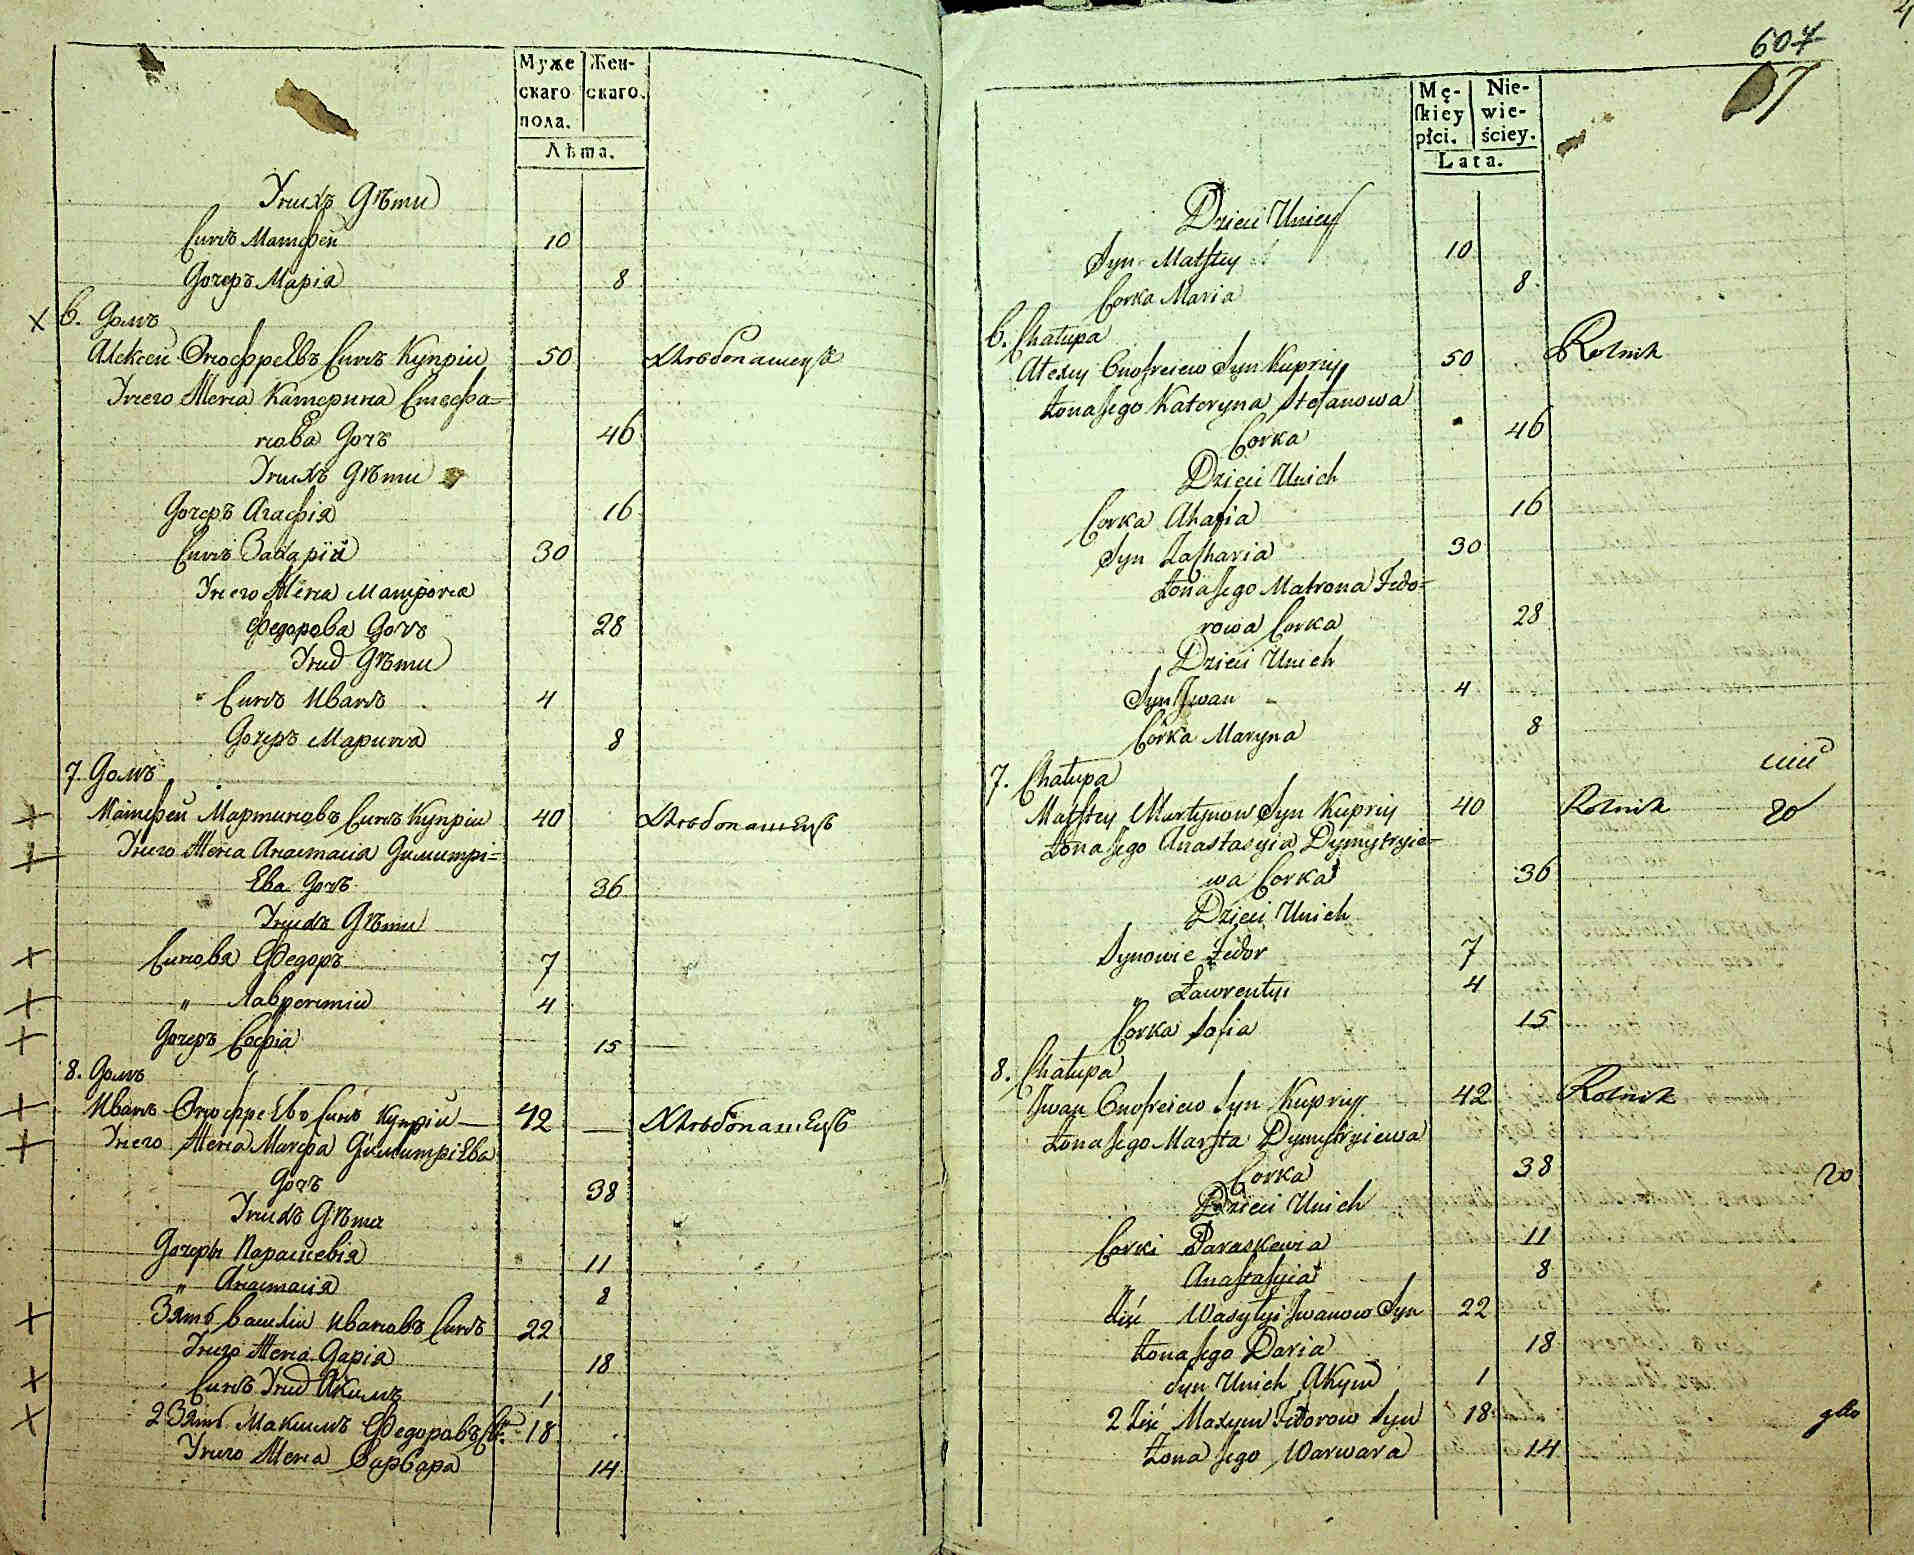 Муже
скаго
пола.
Жен-
скаго.
Лѣта.
Унихъ Дѣти
Синъ Матфей 10
Дочеръ Марія 8
6. Домъ
Алексей Онофреевъ Синъ Купріи 50 Хлѣбопашецъ
Унего Жена Катерина Стефа=
нова Дочъ 46
Унихъ Дѣти
Дочеръ Агафія 16
Синъ Захарій 30
Унего Жена Матрона
Федорова Дочъ 28
Уних Дѣти
Синъ Иванъ 4
Дочеръ Марина 8
7. Домъ
Матфей Мартиновъ Синъ Купріи 40 Хлѣбопашецъ
Унего Жена Анастасіа Димитрі=
Ева Дочъ 36
Унихъ Дѣти
Синовя Федоръ 7
" Лаврентии 4
Дочеръ Софія 15
8. Домъ
Иванъ ОнофреЕвъ Синъ Купрій 42 Хлѣбопашецъ
Унего Жена Марфа ДимитріЕва
Дочъ 38
Унихъ Дѣти
Дочери Параскевія 11
" Анастасія 8
Зять Василіи Ивановъ Синъ 22
Унего Жена Дарія 18
Синъ Уних Якимъ 1
2 Зять Максимъ Федоровъ С. 18
Унего Жена Варвара 14
607
7
Mę-
skiey
płci.
Nie-
wie-
ściey.
Lata.
Dzieci Unich
Syn Matftey 10
Corka Maria 8
6. Chałupa
Alexey Onofreiew Syn Kupriy 50 Rolnik
Żona Jego Kateryna Stefanowa
Corka 46
Dzieci Unich
Corka Ahafia 16
Syn Zacharia 30
Żona Jego Matrona Fedo=
rowa Corka 28
Dzieci Unich
Syn Jwan 4
Córka Maryna 8
7. Chałupa
Matftey Martynow Syn Kupriy 40 Rolnik
Żona Jego Anastasyia Dymytryie=
wa Corka 36
Dzieci Unich
Synowie Fedor 7
" Ławrentyi 4
Corka Sofia 15
8. Chałupa
Jwan Onofreiew Syn Kupriy 42 Rolnik
Żona Jego Marfta Dymytryiewa
Corka 38
Dzieci Unich
Corki Paraskewia 11
Anastasyia 8
Zięć Wasylyi Jwanow Syn 22
Żona Jego Daria 18
Syn Unich Akym 1
2 Zięć Maxym Fedorow Syn 18
Żona Jego Warwara 14